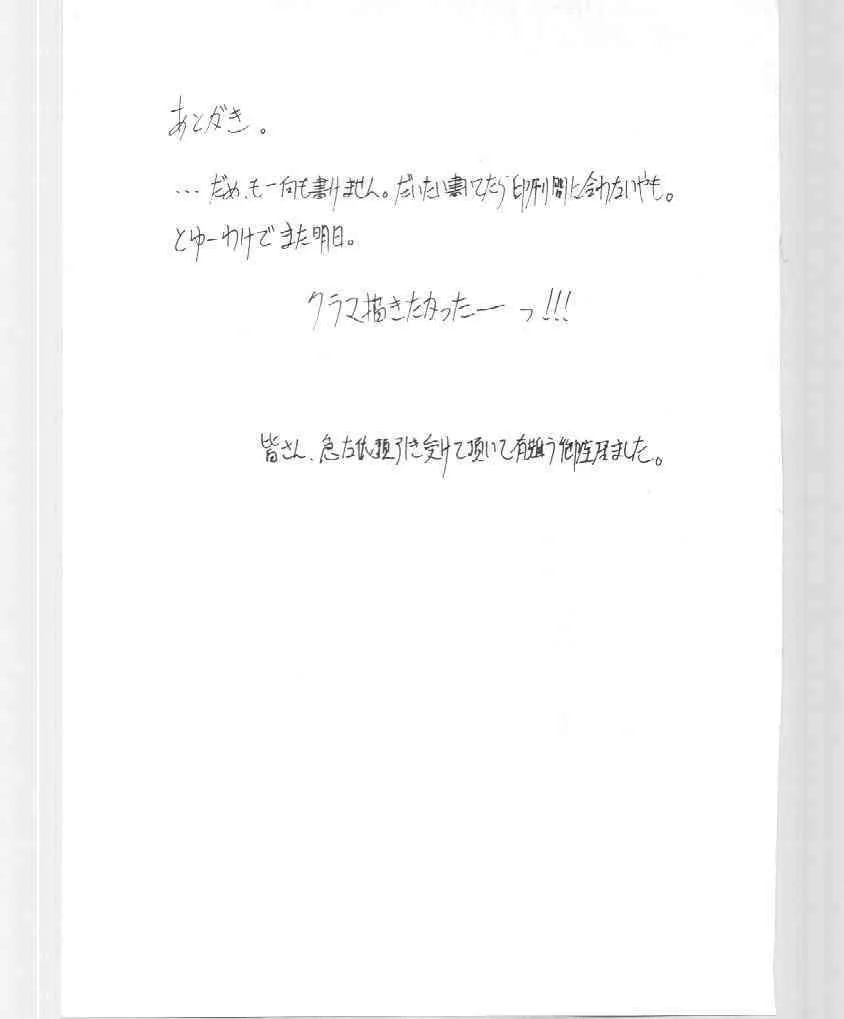 あとがき。
…だめ、もー何も書けません。だいたい書いてたら印刷間に合わないやも。
とゆーわけでまた明日。
クラマ描きたかったーっ!!!
皆さん、急な依頼引き受けて頂いて有難う御座居ました。